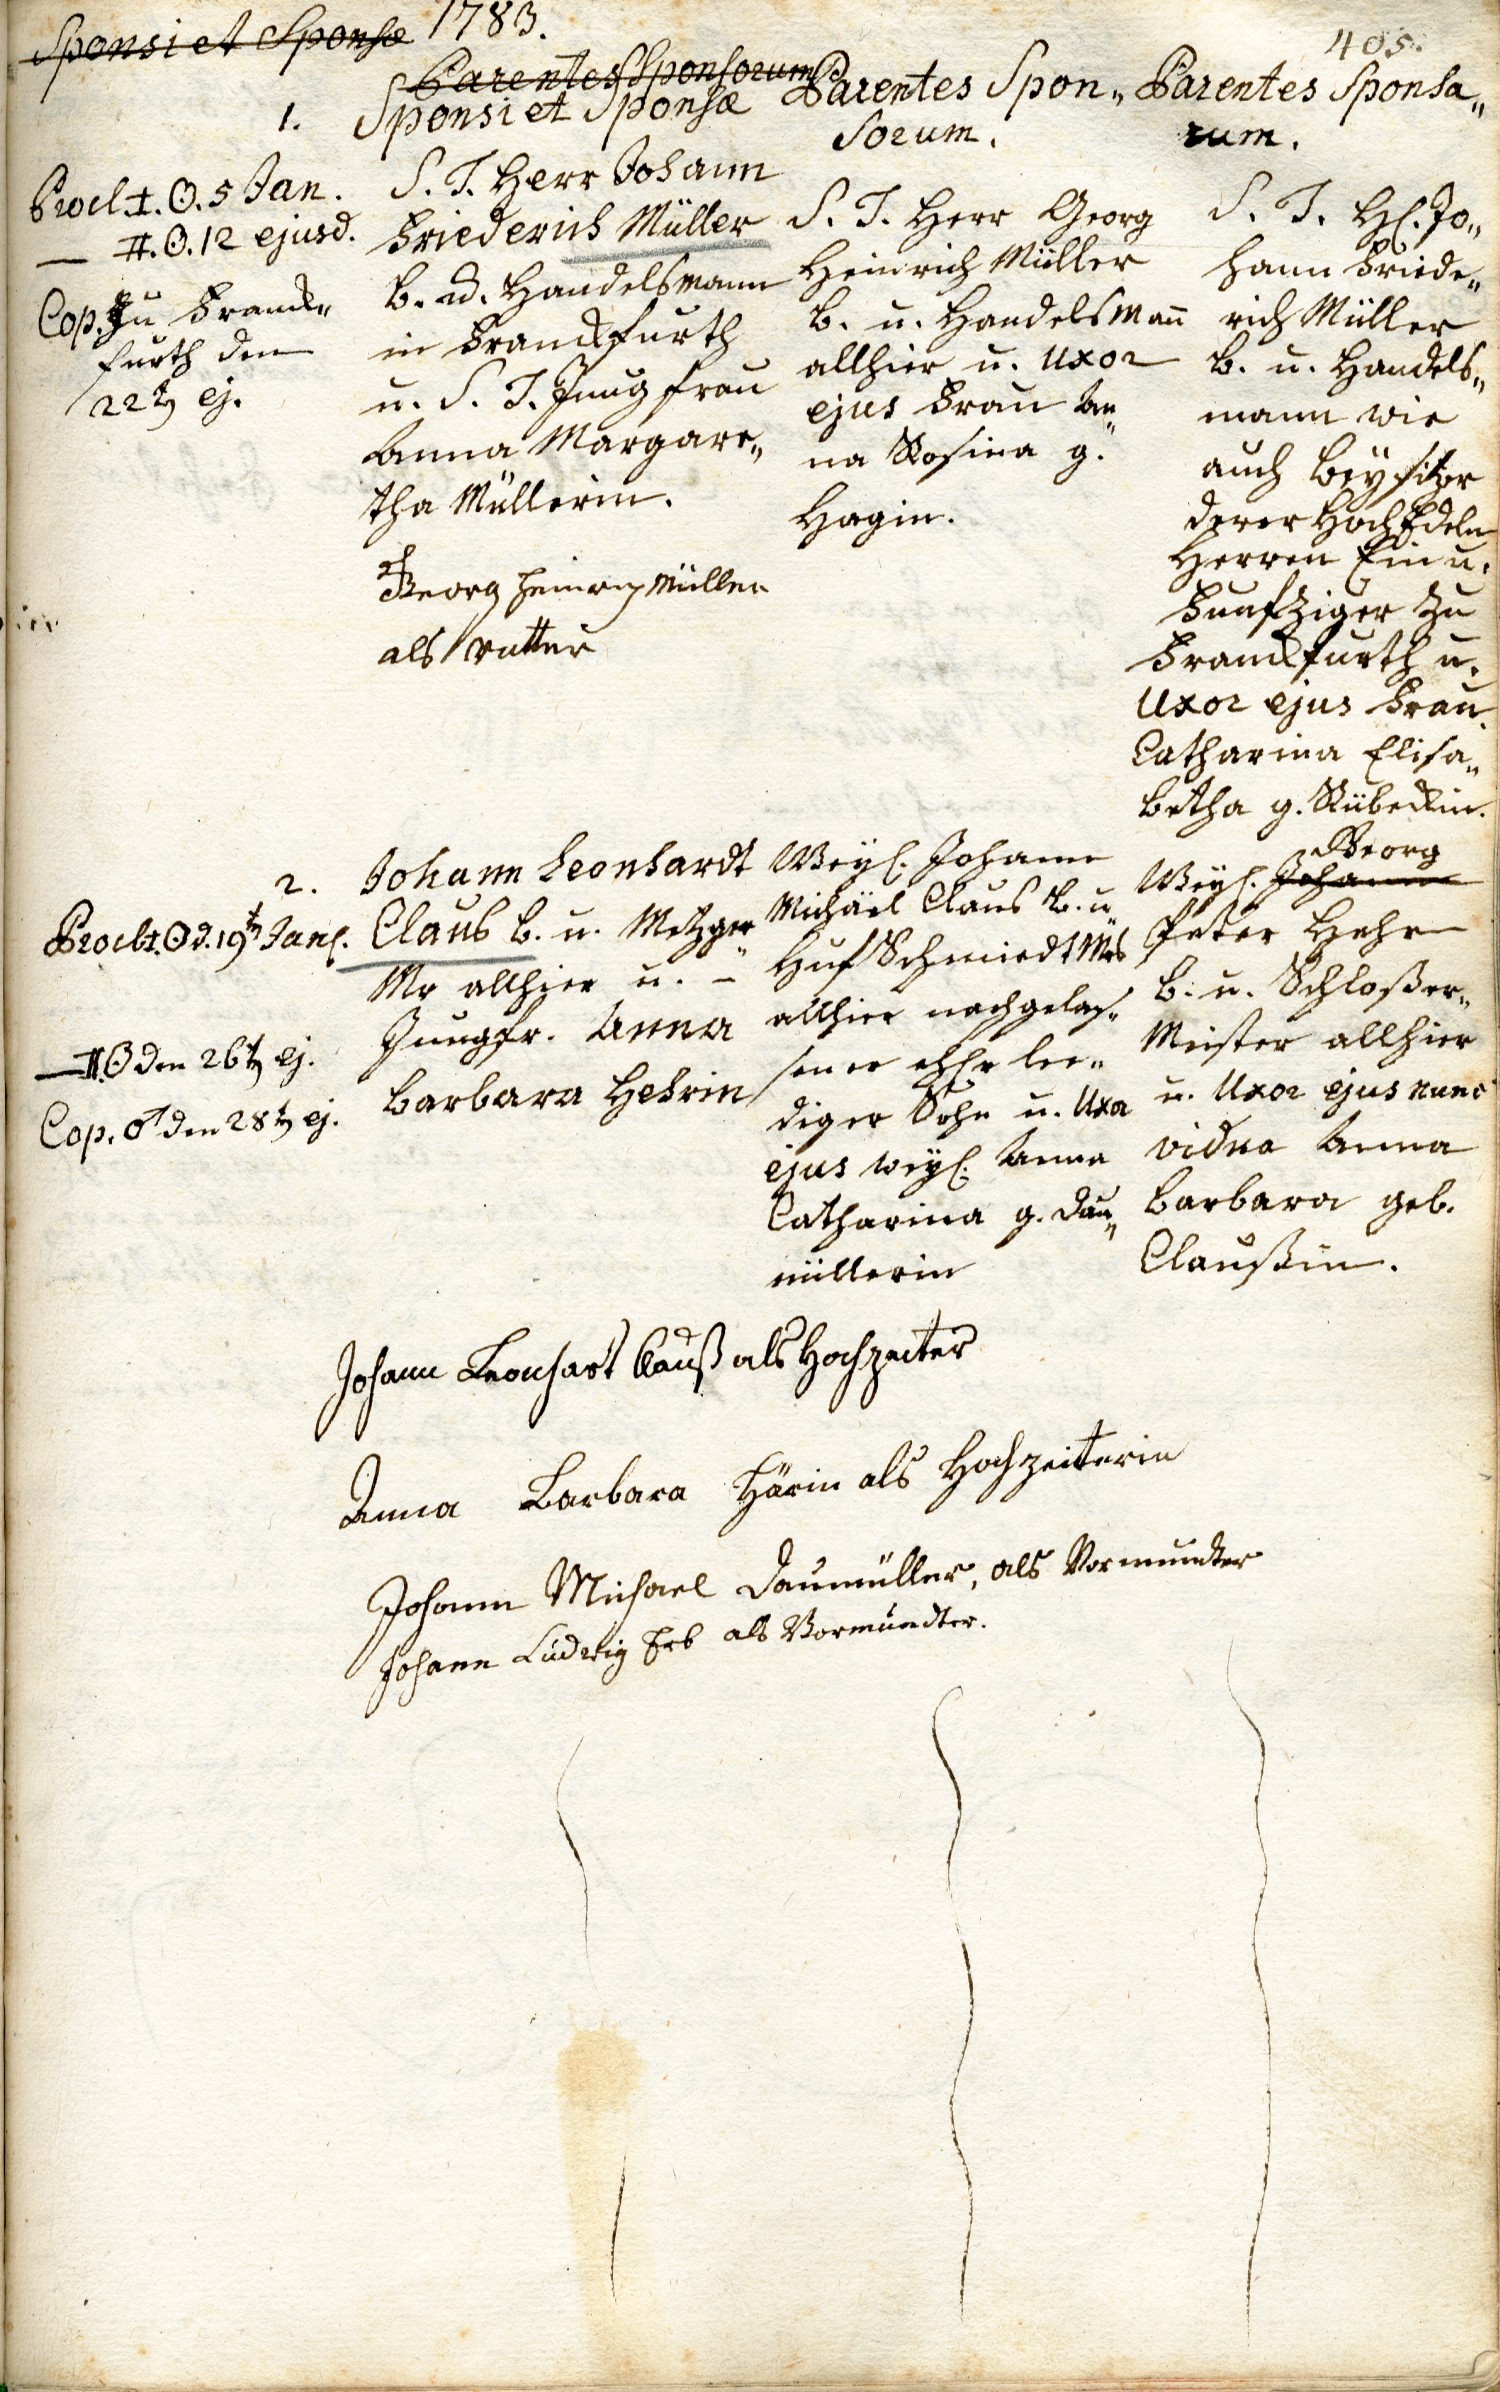 1783.
405.
Sponsi et Sponsæ
Parentes Sponsorum
1.
Sponsi et Sponsæ
Procl. I. ☉. 5 Jan.
— II. ☉. 12 ejusd.
Cop. zu Franck„
furth den
22t ej.
S. T. Herr Johann
Friederich Müller
B. u. Handelsmann
in Franckfurth
u. S. T. Jungfrau
Anna Margare„
tha Müllerin.
Georg Heinrich Müller
als vatter
Parentes Spon„
sorum.
S. T. Herr Georg
Heinrich Müller
B. u. Handelsmann
allhier u. Uxor
ejus Frau An„
na Rosina g.
Hagin.
Parentes Sponsa„
rum.
S. T. H. Jo„
hann Friede„
rich Müller
B. u. Handels„
mann wie
auch Beysitzer
derer HochEdeln
Herren Ein u.
Funfziger zu
Franckfurth u.
Uxor ejus Frau
Catharina Elisa„
betha g. Rübeckin.
2.
Procl. I. ☉ d. 19t Jan.
— II. ☉ den 26t ej.
Cop. ♂ den 28t ej.
Johann Leonhardt
Claus B. u. Metzger„
Mr allhier u. –
Jungfr. Anna
Barbara Hehrin
Weyl. Johann
Michäel Claus B. u.
HufSchmiedt Mrs
allhier nachgelas„
sener ehl. lee„
diger Sohn u. Uxor
ejus weyl. Anna
Catharina g. Dau„
müllerin
Georg
Weyl. Johann
Peter Hehr
B. u. Schloßer„
Meister allhier
u. Uxor ejus nunc
vidua Anna
Barbara geb.
Claußin.
Johann Leonhart Clauß als Hochzeiter
Anna Barbara Härin als Hochzeiterin
Johann Michael Daumüller, als Vormundter
Johann Ludwig Erb als Vormundter.